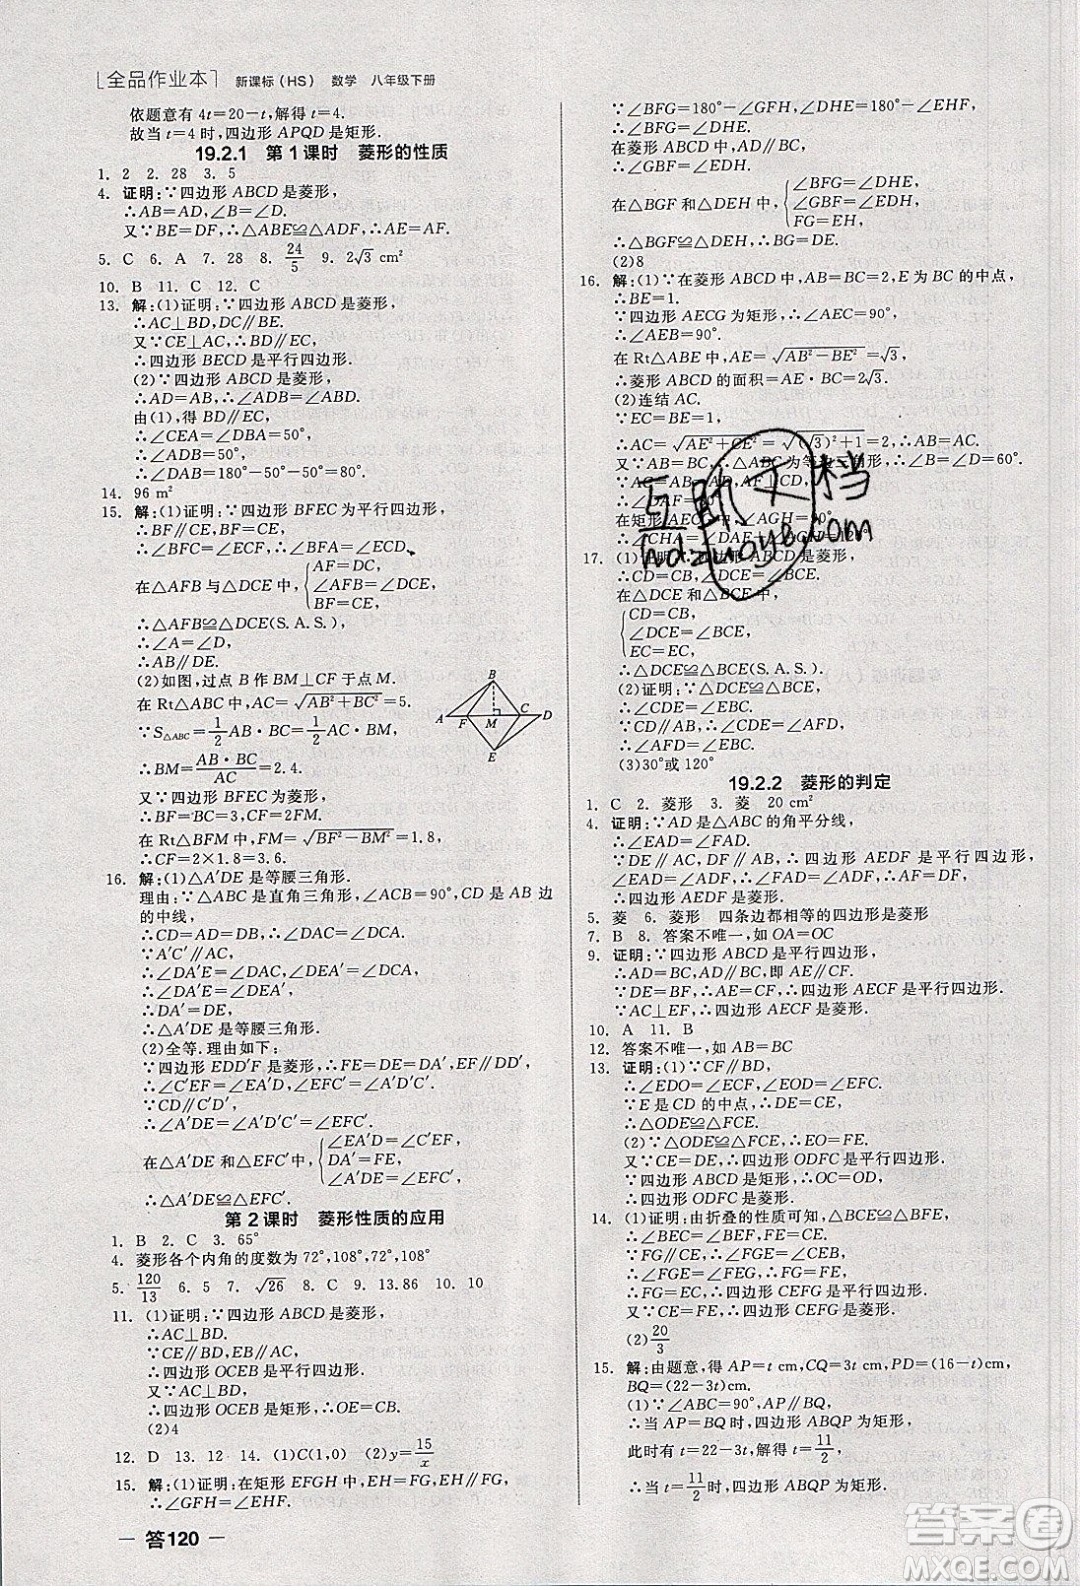 全品作业本 新课标(HS) 数学 八年级下册
依题意有 4t=20-t,解得 t=4.
故当 t=4 时,四边形 APQD 是矩形.
19.2.1 第1课时 菱形的性质
1. 2 2. 28 3. 5
4. 证明:∵四边形 ABCD 是菱形,
∴AB=AD,∠B=∠D.
又∵BE=DF,∴△ABE≌△ADF,∴AE=AF.
5. C 6. A 7. 28 8. 24/5 9. 2√3 cm²
10. B 11. C 12. C
13. 解:(1)证明:∵四边形 ABCD 是菱形,
∴AC⊥BD,DC∥BE.
又∵CE⊥AC,∴BD∥EC,
∴四边形 BECD 是平行四边形.
(2)∵四边形 ABCD 是菱形,
∴AD=AB,∴∠ADB=∠ABD.
由(1),得 BD∥EC,
∴∠CEA=∠DBA=50°,
∴∠ADB=50°,
∴∠DAB=180°-50°-50°=80°.
14. 96 m²
15. 解:(1)证明:∵四边形 BFEC 为菱形,
∴BF∥CE,BF=CE,
∴∠BFC=∠ECF,∴∠AFB=∠DCE.
在△AFB 与△DCE 中,{AF=DC, ∠AFB=∠DCE, BF=CE,
∴△AFB≌△DCE(S.A.S.),
∴∠A=∠D,
∴AB∥DE.
(2)如图,过点 B 作 BM⊥CF 于点 M.
在 Rt△ABC 中,AC=√(AB²+BC²)=5.
∵S△ABC=1/2 AB·BC=1/2 AC·BM,
∴BM=AB·BC/AC=2.4.
又∵四边形 BFEC 为菱形,
∴BF=BC=3,CF=2FM.
在 Rt△BFM 中,FM=√(BF²-BM²)=1.8,
∴CF=2×1.8=3.6.
B
A F M C D
E
16. 解:(1)△A′DE 是等腰三角形.
理由:∵△ABC 是直角三角形,∠ACB=90°,CD 是 AB 边
的中线,
∴CD=AD=DB,∴∠DAC=∠DCA.
∵A′C′∥AC,
∴∠DA′E=∠DAC,∠DEA′=∠DCA,
∴∠DA′E=∠DEA′,
∴DA′=DE,
∴△A′DE 是等腰三角形.
(2)全等.理由如下:
∵四边形 EDD′F 是菱形,∴DE=FE,EF∥DD′,
∴∠CEF=∠EA′D,∠EFC′=∠A′D′C′.
∵CD∥C′D′,
∴∠A′DE=∠A′D′C′=∠EFC′.
在△A′DE 和△EFC′中,{∠EA′D=∠C′EF, DE=FE, ∠A′DE=∠EFC′,
∴△A′DE≌△EFC′.
第2课时 菱形性质的应用
1. B 2. C 3. 65°
4. 菱形各个内角的度数为 72°,108°,72°,108°.
5. 120/13 6. 5 7. √26 8. C 9. 13.86 10. 10
11. (1)证明:∵四边形 ABCD 是菱形,
∴AC⊥BD.
∵CE∥BD,EB∥AC,
∴四边形 OCEB 是平行四边形.
又∵AC⊥BD,
∴四边形 OCEB 是矩形,∴OE=CB.
(2)4
12. D 13. 12 14. (1)C(1,0) (2)y=15/x
15. 解:(1)证明:在矩形 EFGH 中,EH=FG,EH∥FG,
∴∠GFH=∠EHF.
答120
∵∠BFG=180°-∠GFH,∠DHE=180°-∠EHF,
∴∠BFG=∠DHE.
在菱形 ABCD 中,AD∥BC,
∴∠GBF=∠EDH.
在△BGF 和△DEH 中,{∠BFG=∠DHE, ∠GBF=∠EDH, FG=EH,
∴△BGF≌△DEH,∴BG=DE.
(2)8
16. 解:(1)∵在菱形 ABCD 中,AB=BC=2,E 为 BC 的中点,
∴BE=1.
∵四边形 AECG 为矩形,∴∠AEC=90°,
∴∠AEB=90°.
在 Rt△ABE 中,AE=√(AB²-BE²)=√3,
∴菱形 ABCD 的面积=AE·BC=2√3.
(2)连结 AC.
∵EC=BE=1,
∴AC=√(AE²+CE²)=√((√3)²+1²)=2,又∵AB=BC=2,
∵AC=AB=BC,∴△ABC 为等边三角形,∴∠BAC=60°.
17. (1)证明:∵四边形 ABCD 是菱形,
∴CD=CB,∠DCE=∠BCE.
在△DCE 和△BCE 中,
{CD=CB, ∠DCE=∠BCE, EC=EC,
∴△DCE≌△BCE(S.A.S.).
∴∠CDE=∠CBE.
∵CD∥AB,∴∠CDE=∠AFD,
∴∠AFD=∠EBC.
(3)30°或 120°
19.2.2 菱形的判定
1. C 2. 菱形 3. 菱 20 cm²
4. 证明:∵AD 是△ABC 的角平分线,
∴∠EAD=∠FAD.
∵DE∥AC,DF∥AB,∴四边形 AEDF 是平行四边形,
∠EAD=∠ADF,∴∠FAD=∠FDA,
∴AF=DF,∴四边形 AEDF 是菱形.
5. 菱 6. 菱形 四条边都相等的四边形是菱形
7. B 8. 答案不唯一,如 OA=OC
9. 证明:∵四边形 ABCD 是平行四边形,
∴AD=BC,AD∥BC,即 AF∥EC.
∵DE=BF,∴AF=CE,∴四边形 AECF 是平行四边形.
∵AC⊥EF,∴四边形 AECF 是菱形.
10. A 11. B
12. 答案不唯一,如 AB=BC
13. 证明:(1)∵CF∥BD,
∴∠EDO=∠FCE,∠EOD=∠EFC.
∵E 是 CD 的中点,∴CE=DE,
∴△ODE≌△FCE.
(2)∵△ODE≌△FCE,∴OD=FC.
又∵CF∥BD,∴四边形 ODFC 是平行四边形.
∵四边形 ABCD 是矩形,∴OC=OD,
∴四边形 ODFC 是菱形.
14. (1)证明:由折叠的性质可知,△BCE≌△BFE,
∴∠BEC=∠BEF,FE=CE.
∵FG∥CE,∴∠FGE=∠CEB,
∴∠FGE=∠FEG,
∴FG=FE,
∴FG=EC,∴四边形 CEFG 是平行四边形.
又∵CE=FE,∴四边形 CEFG 是菱形.
(2)20/3
15. 解:由题意,得 AP=t cm,CQ=3t cm,PD=(16-t)cm,
BQ=(22-3t)cm.
(1)∵∠ABC=90°,AP∥BQ,
∴当 AP=BQ 时,四边形 ABQP 为矩形,
此时有 t=22-3t,解得 t=11/2,
∴当 t=11/2 时,四边形 ABQP 为矩形.
互助文档
hdzuoye.com
答案圈
MXQE.COM